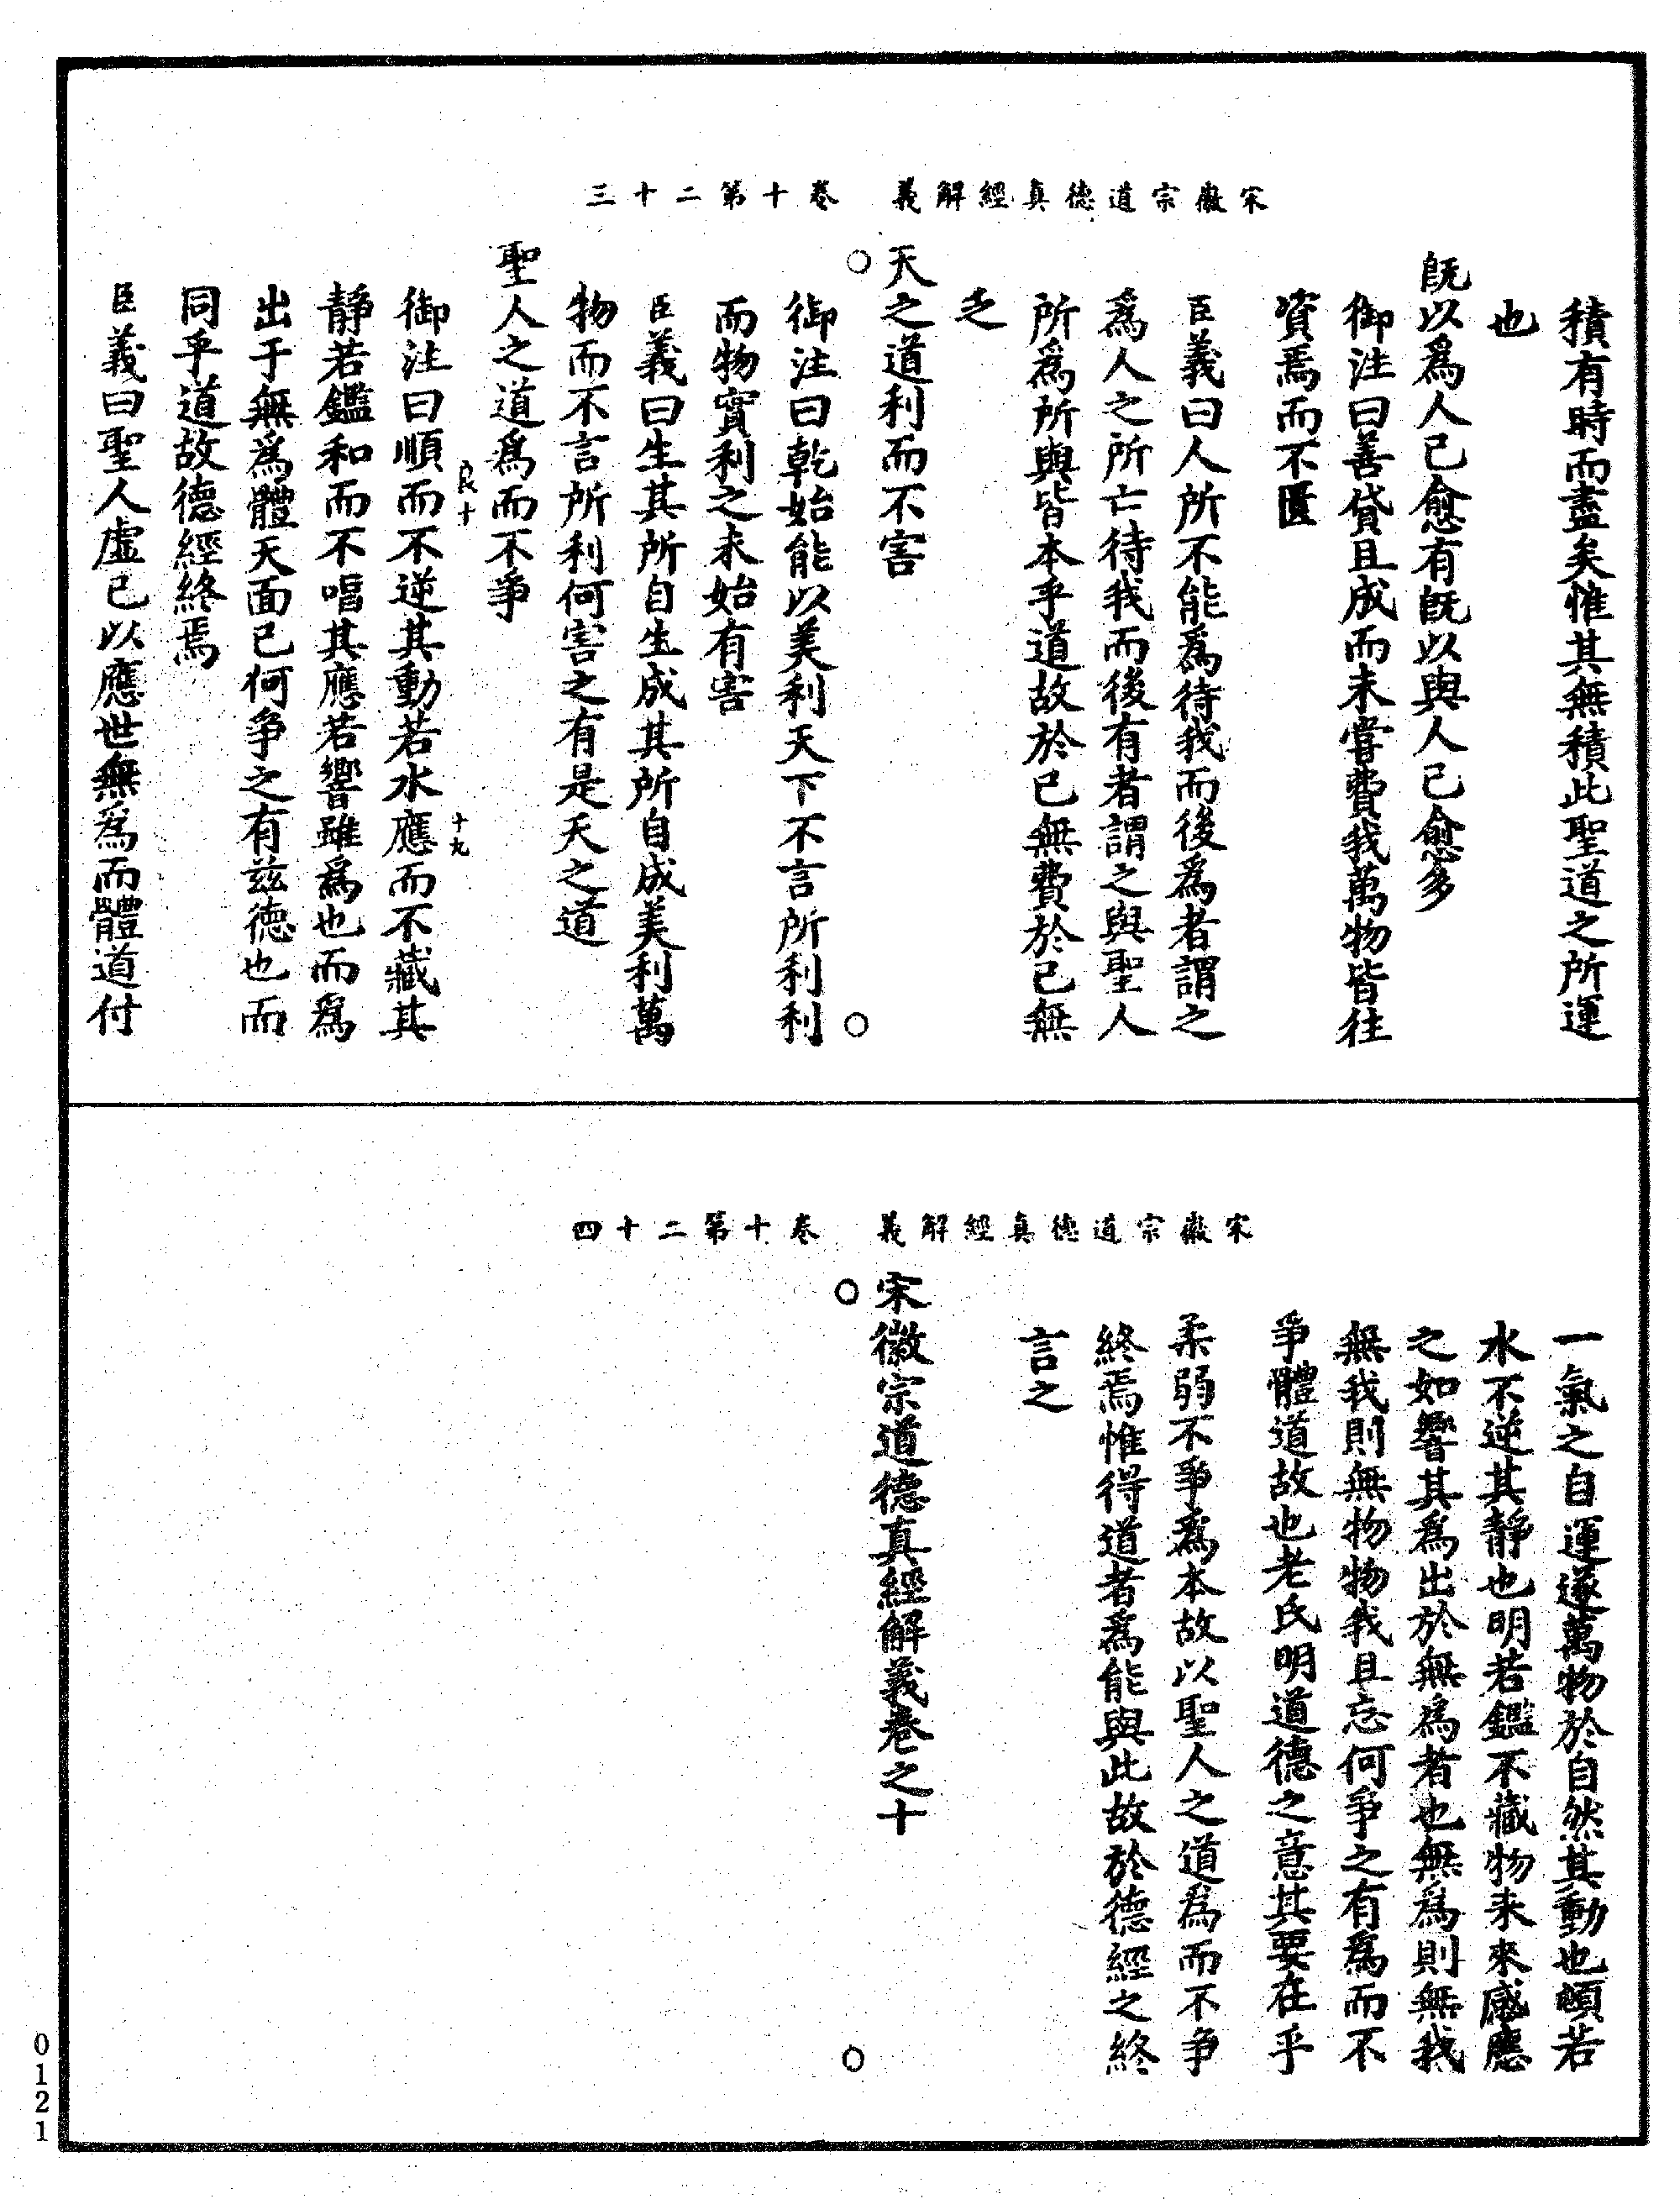 宋徽宗道德真經解義　卷十第二十三
積有時而盡矣惟其無積此聖道之所運
也
既以爲人己愈有既以與人己愈多
御注曰善貸且成而未嘗費我萬物皆往
資焉而不匱
臣義曰人所不能爲待我而後爲者謂之
爲人之所亡待我而後有者謂之與聖人
所爲所與皆本乎道故於已無費於已無
乏
天之道利而不害
○　○
御注曰乾始能以美利天下不言所利利
而物實利之未始有害
臣義曰生其所自生成其所自成美利萬
物而不言所利何害之有是天之道
聖人之道爲而不爭
良十　十九
御注曰順而不逆其動若水應而不藏其
靜若鑑和而不唱其應若響雖爲也而爲
出于無爲體天而已何争之有茲德也而
同乎道故德經終焉
臣義曰聖人虛已以應世無爲而體道付
宋徽宗道德真經解義　卷十第二十四
一氣之自運遂萬物於自然其動也順若
水不逆其靜也明若鑑不藏物来來感應
之如響其爲出於無爲者也無爲則無我
無我則無物物我且忘何爭之有爲而不
爭體道故也老氏明道德之意其要在乎
柔弱不爭爲本故以聖人之道爲而不争
終焉惟得道者爲能與此故於德經之終
言之
宋徽宗道德真經解義卷之十
○　○
0121